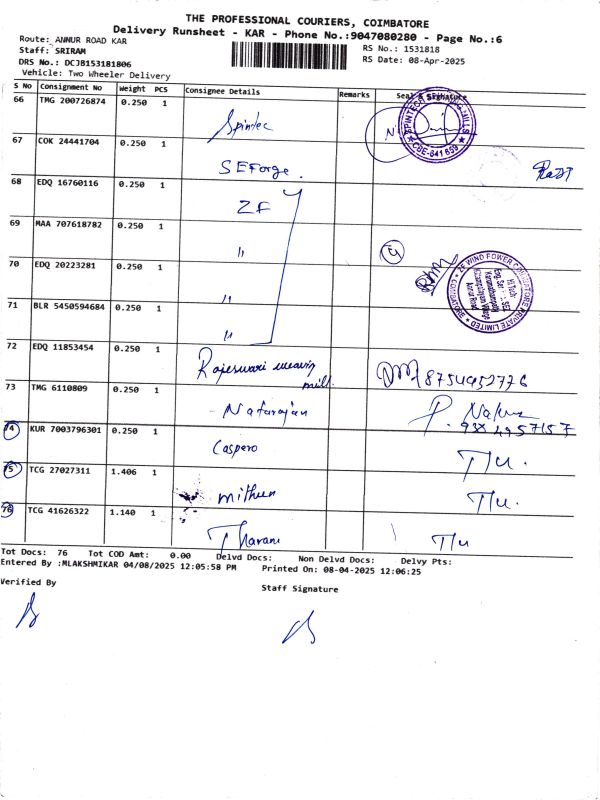 THE PROFESSIONAL COURIERS, COIMBATORE
Delivery Runsheet - KAR - Phone No.:9047080280 - Page No.:6
Route: ANNUR ROAD KAR
RS No.: 1531818
Staff: SRIRAM
RS Date: 08-Apr-2025
DRS No.: DCJB153181806
Vehicle: Two Wheeler Delivery
S No Consignment No Weight PCS Consignee Details Remarks Seal & Signature
66 TMG 200726874 0.250 1 Spintec
67 COK 24441704 0.250 1 SEForge.
68 EDQ 16760116 0.250 1 ZF
69 MAA 707618782 0.250 1 "
70 EDQ 20223281 0.250 1 "
71 BLR 5450594684 0.250 1 "
72 EDQ 11853454 0.250 1 Rajeswari weaving mill 8754952776
73 TMG 6110809 0.250 1 Natarajan
74 KUR 7003796301 0.250 1 Caspero
75 TCG 27027311 1.406 1 mithun
76 TCG 41626322 1.140 1 Tharani
Tot Docs: 76 Tot COD Amt: 0.00 Delvd Docs: Non Delvd Docs: Delvy Pts:
Entered By :MLAKSHMIKAR 04/08/2025 12:05:58 PM Printed On: 08-04-2025 12:06:25
Verified By
Staff Signature